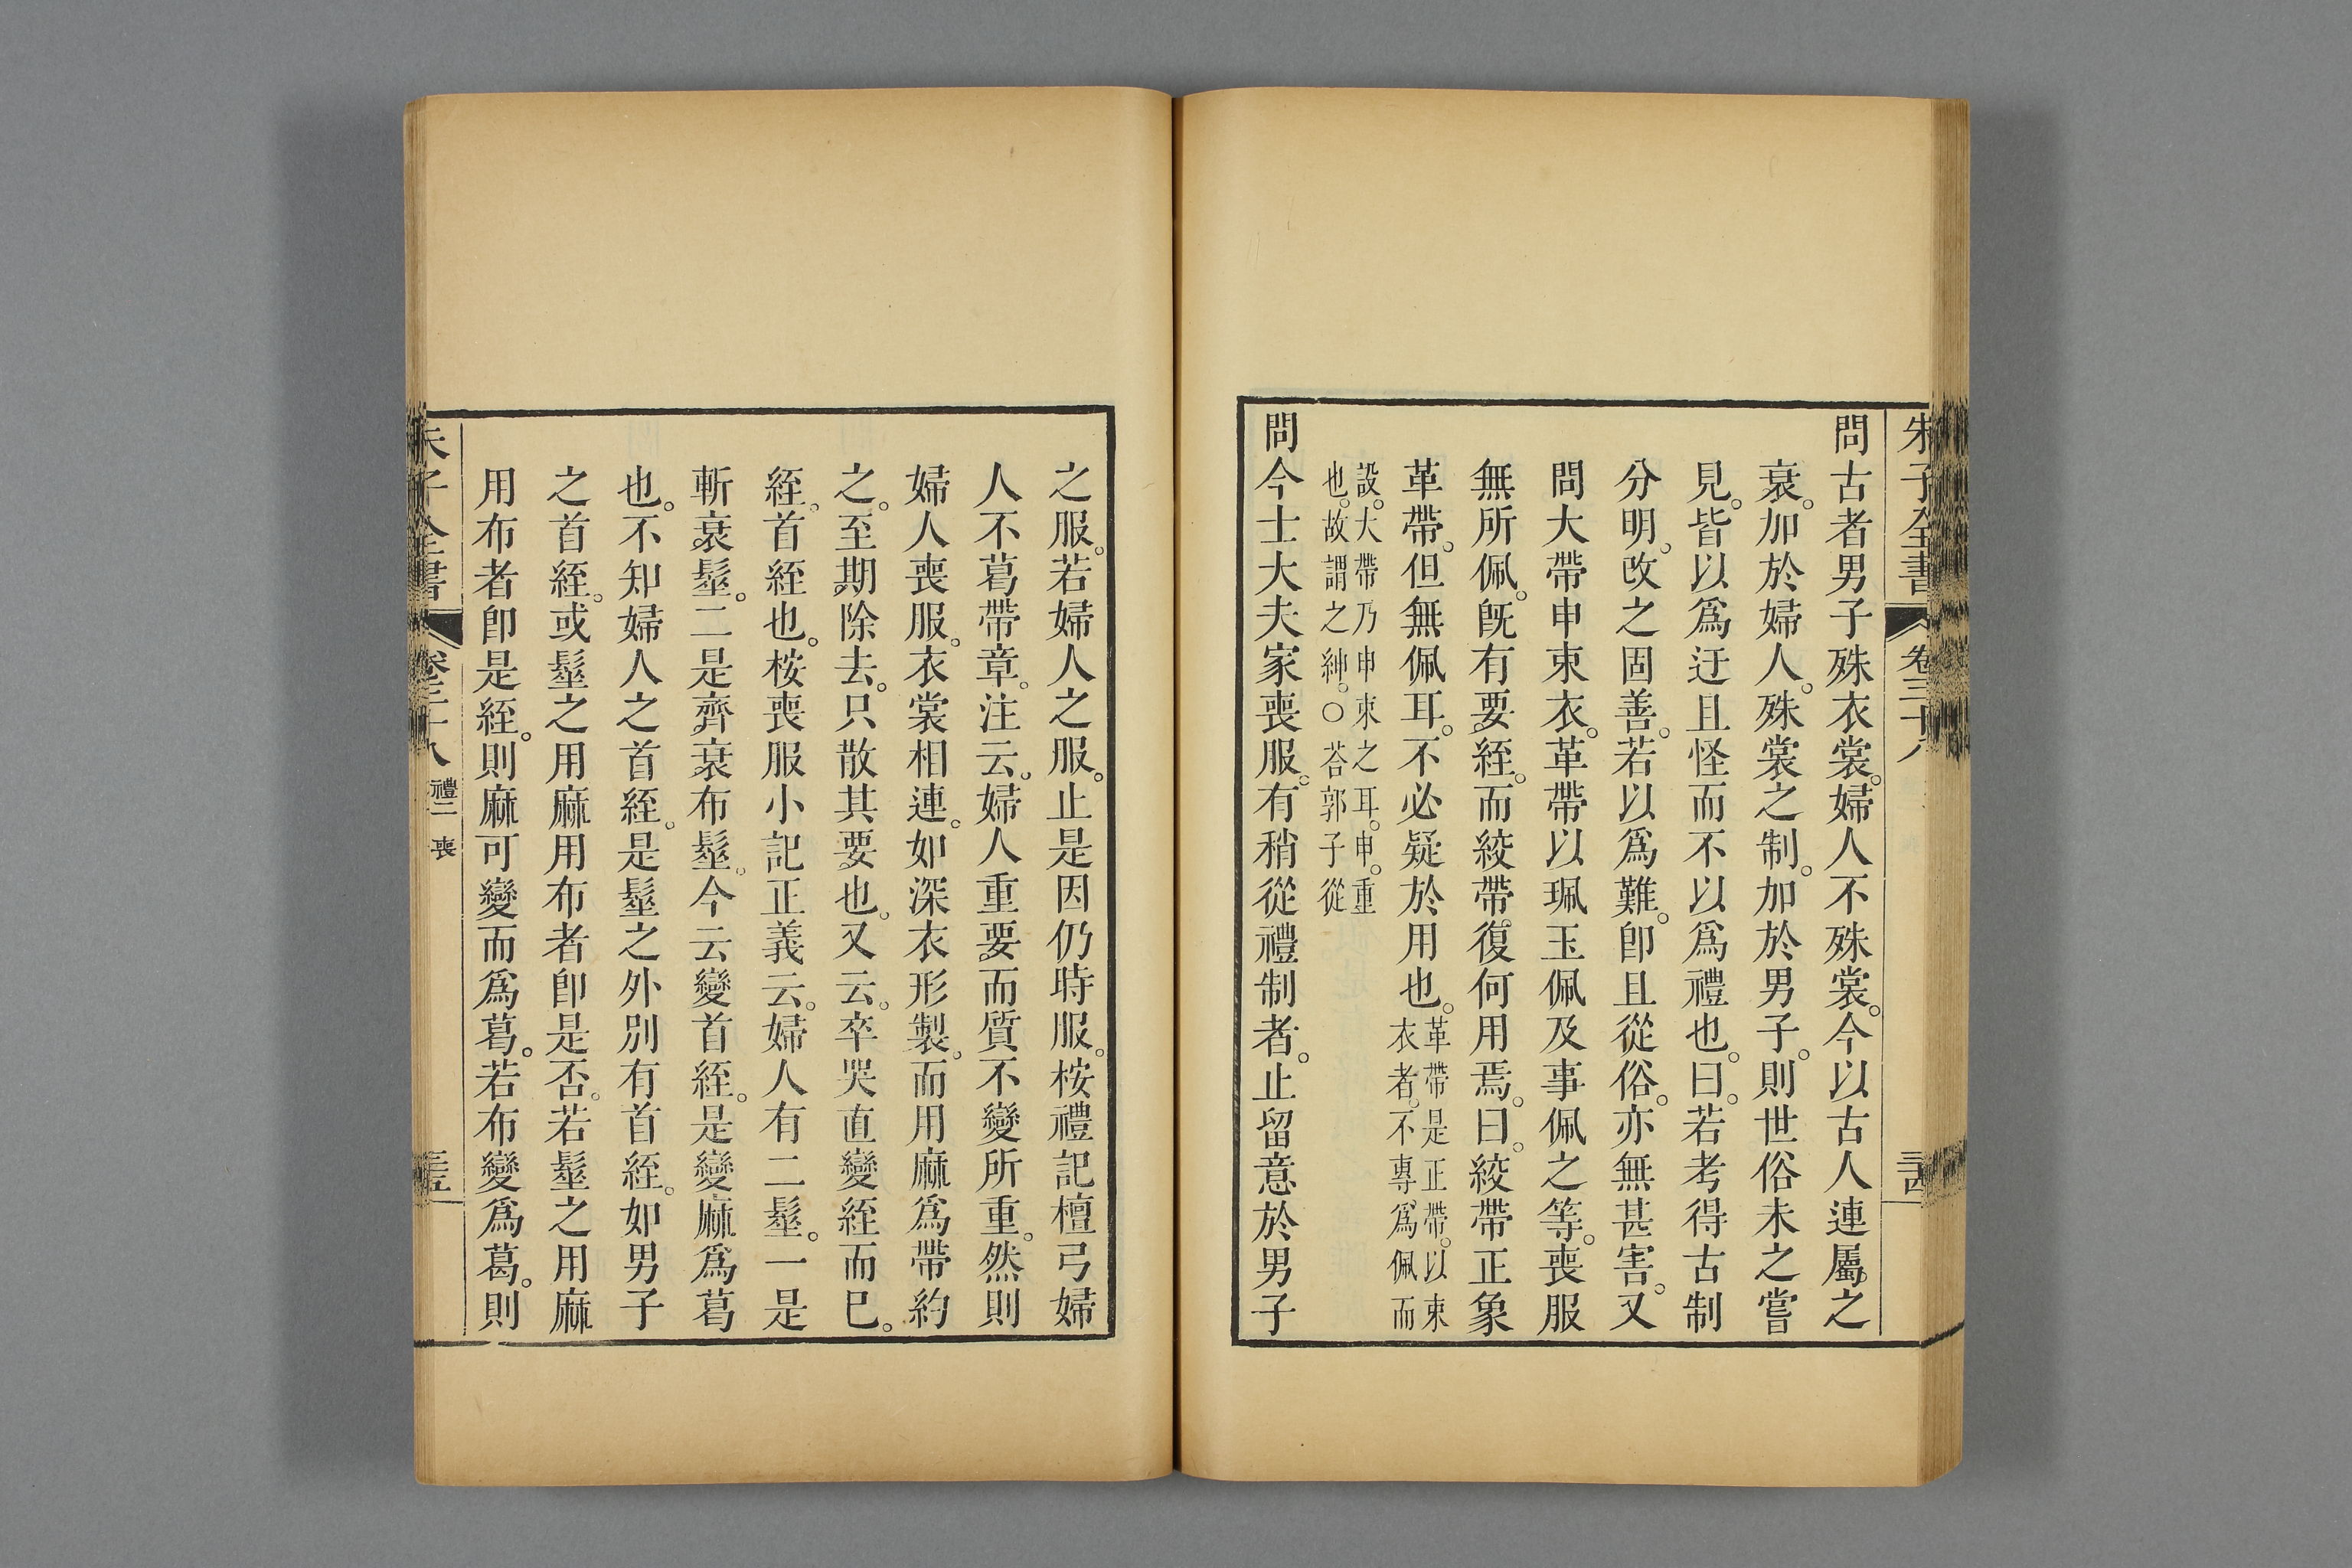 朱子全書 卷三十八 三十四
問古者男子殊衣裳。婦人不殊裳。今以古人連屬之
衰。加於婦人。殊裳之制。加於男子。則世俗未之嘗
見。皆以爲迂且怪而不以爲禮也。曰。若考得古制
分明。改之固善。若以爲難。卽且從俗。亦無甚害。又
問大帶申束衣。革帶以珮玉佩及事佩之等。喪服
無所佩。旣有要絰。而絞帶復何用焉。曰。絞帶正象
革帶。但無佩耳。不必疑於用也。革帶是正帶。以束
衣者。不專爲佩而
設。大帶乃申束之耳。申。重
也。故謂之紳。○荅郭子從
問今士大夫家喪服。有稍從禮制者。止留意於男子
之服。若婦人之服。止是因仍時服。桉禮記檀弓婦
人不葛帶章。注云。婦人重要而質不變所重。然則
婦人喪服。衣裳相連。如深衣形製。而用麻爲帶約
之。至期除去。只散其要也。又云。卒哭直變絰而已。
絰。首絰也。桉喪服小記正義云。婦人有二髽。一是
斬衰髽。二是齊衰布髽。今云變首絰。是變麻爲葛
也。不知婦人之首絰。是髽之外別有首絰。如男子
之首絰。或髽之用麻用布者卽是否。若髽之用麻
用布者卽是絰。則麻可變而爲葛。若布變爲葛。則
朱子全書 卷三十八 禮二 喪 三十五